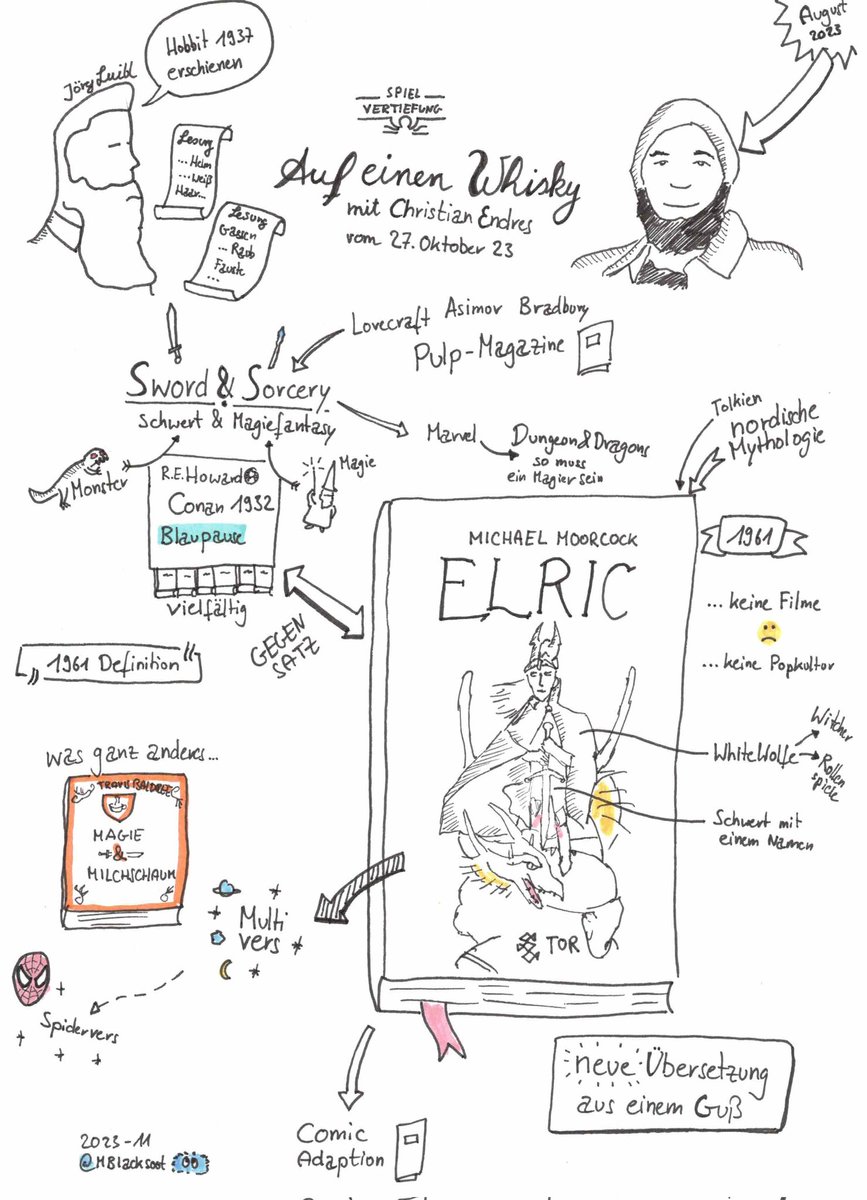 August
2023
Hobbit 1937
erschienen
Jörg Luibl
SPIEL
VERTIEFUNG
Auf einen Whisky
mit Christian Endres
vom 27. Oktober 23
Lesung
... Helm
... weiß
Haar...
Lesung
Gassen
... Raab
Fauste
...
Lovecraft Asimov Bradbury
Pulp-Magazine
Sword & Sorcery
Schwert & Magiefantasy
Marvel
Dungeon & Dragons
so muss
ein Magier sein
Tolkien
nordische
Mythologie
Monster
R.E. Howard
Conan 1932
Blaupause
Magie
vielfältig
GEGEN
SATZ
„1961 Definition“
MICHAEL MOORCOCK
ELRIC
TOR
1961
... keine Filme
... keine Popkultur
WhiteWolfe
Witcher
Rollen
spiele
Schwert mit
einem Namen
was ganz anderes...
TRAVIS BALDREE
MAGIE
&
MILCHSCHAUM
Multi
vers
Spidervers
neue Übersetzung
aus einem Guß
Comic
Adaption
2023-11
@MBlacksoot